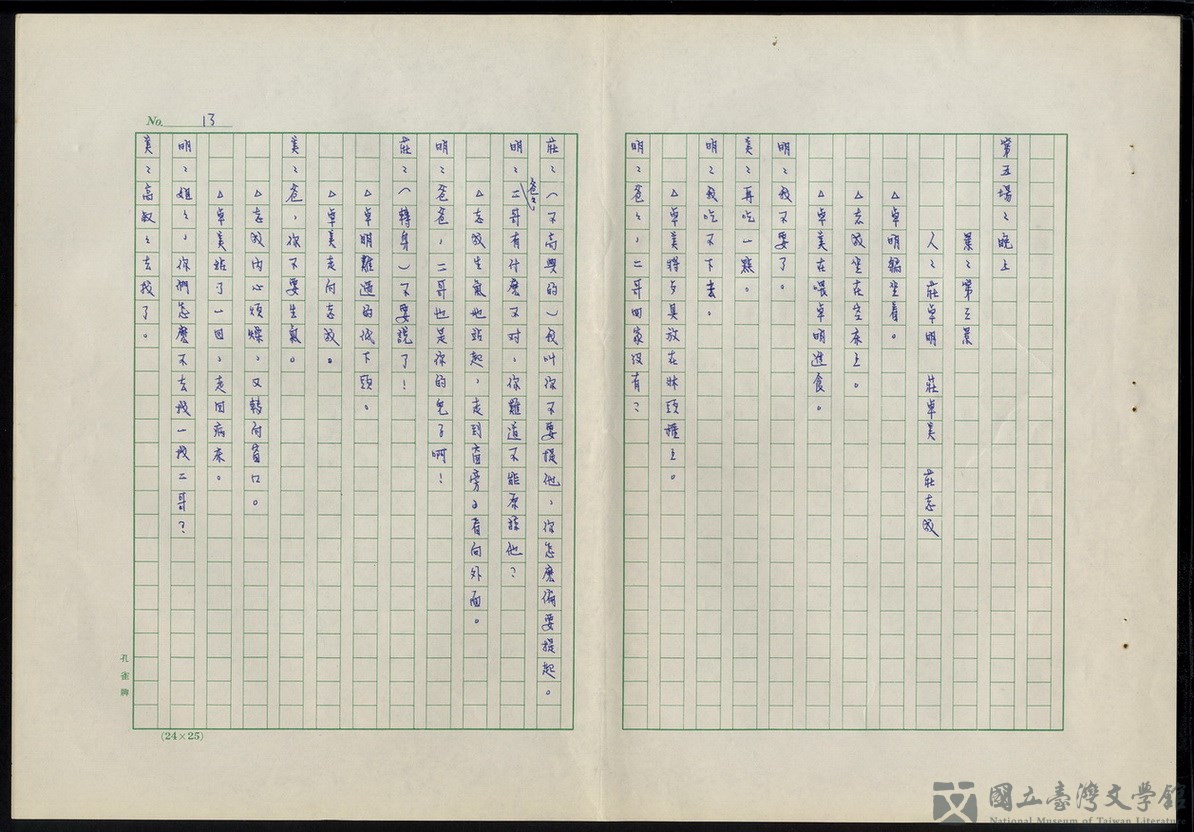 第五場：晚上
景：第三景
人：莊卓明　莊卓美　莊志成
△卓明躺坐着。
△志成坐在空床上。
△卓美在喂卓明進食。
明：我不要了。
美：再吃一點。
明：我吃不下去。
△卓美將步具放在床頭櫃上。
明：爸爸，二哥回家沒有？
莊：（不高興的）我叫你不要提他，你怎麼偏要提起。
明：爸爸，二哥有什麼不對，你難道不能原諒他？
△志成生氣他站起，走到窗旁，看向外面。
明：爸爸，二哥也是你的兒子啊！
莊：（轉身）不要說了！
△卓明難過的低下頭。
△卓美走向志成。
美：爸，你不要生氣。
△志成內心煩燥，又轉向窗口。
△卓美站了一回，走回病床。
明：姐姐，你們怎麼不去找一找二哥？
美：高叔叔去找了。
No. 13
孔雀牌
(24×25)
國立臺灣文學館
National Museum of Taiwan Literature